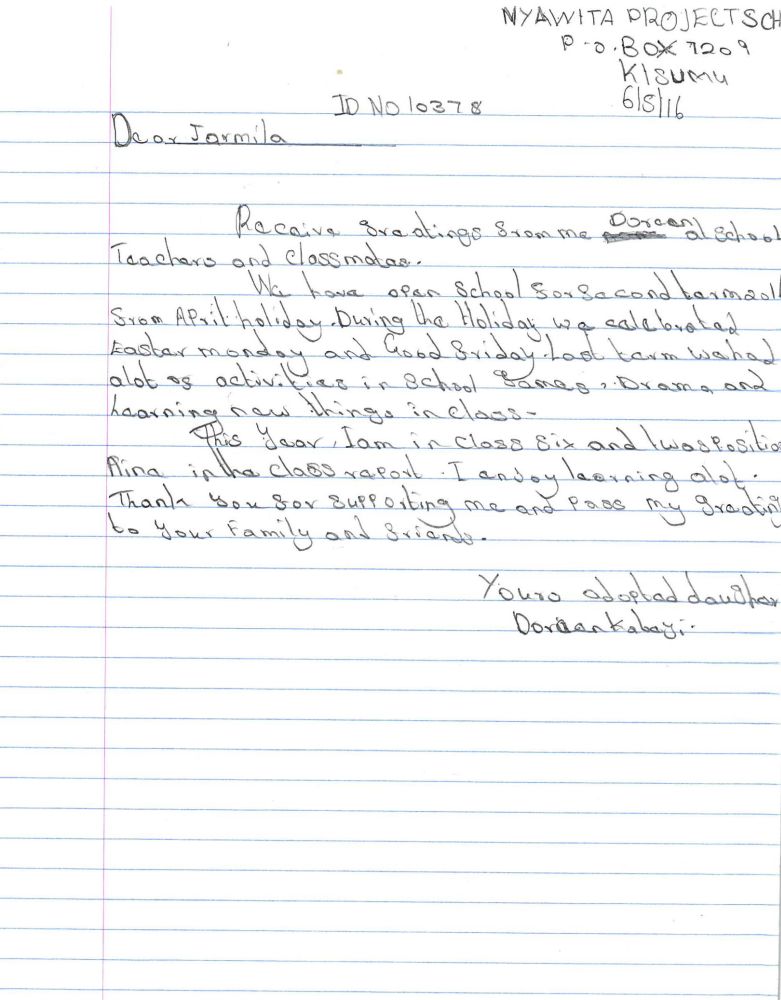 NYAWITA PROJECT SCH
P.O. BOX 7209
KISUMU
6/5/16
ID NO 10378
Dear Jarmila
Receive greetings from me Doreen, al school
Teachers and classmates.
We have open School for second term 201
from April holiday. During the Holiday we celebrated
Easter monday and Good friday. Last term we had
alot of activities in School games, Drama, and
Learning new things in class-
This Year, I am in class six and I was Positio
Nine in the class report. I enjoy learning alot.
Thank you for supporting me and Pass my greetin
to your family and friends.
Yours adopted daughter
Doreen Kabayi.